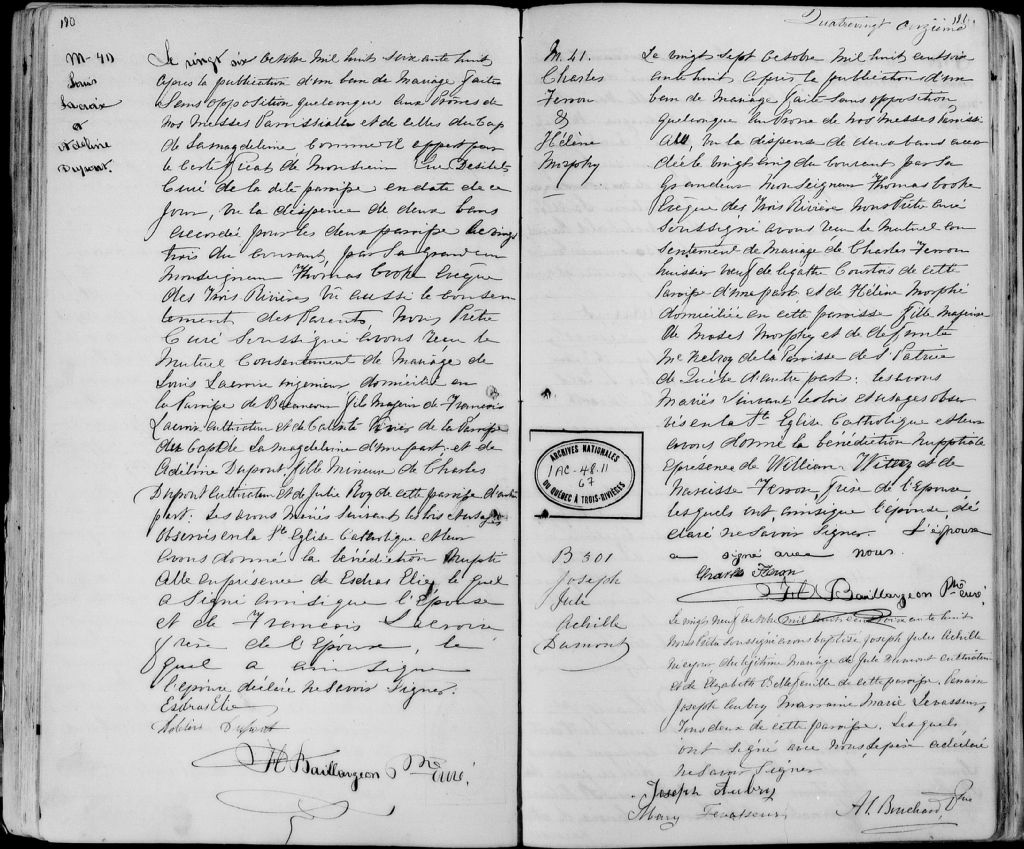 180
M-40
Louis
Lacroix
et
Adeline
Dupont.
Le vingt six Octobre Mil huit soix ante huit
après la publication d'un ban de Mariage faite
Sans opposition quelconque aux Prones de
nos Messes Paroissiales et de celles du Cap
de La magdeleine comme il appert par
le Certificat de Monsieur Luc Desilets
Curé de la dite paroisse en date de ce
jour, vu la dispense de deux bans
accordée pour les deux paroisses le vingt
trois du courant, par Sa Grandeur
Monseigneur Thomas Cooke Evêque
des Trois Rivières vu aussi le consen
tement des Parents Nous Prêtre
Curé Soussigné avons reçu le
Mutuel Consentement de Mariage de
Louis Lacroix ingenieur domicilié en
la Paroisse de Becancour fils Majeur de Francois
Lacroix cultivateur et de Calixte Rivier de la Paroisse
du Cap de La Magdeleine d'une part: et de
Adéline Dupont fille Mineure de Charles
Dupont Cultivateur et de Julie Roy de cette paroisse d'autre
part: Les avons Mariés Suivant les lois et usages
Observés en la Ste Eglise Catholique et leur
avons donné la bénédiction Nupti
ale en présence de Esdras Elie le quel
a Signé ainsi que l'Épouse
et de Francois Lacroix
frère de l'Epoux, le
quel a ainsi que
l'epoux déclaré ne Savoir Signer.
Esdras Elie
Adeline Dupont
H Baillargeon Ptre curé.
Quatrevingt onzième
181.
M. 41.
Charles
Ferron
&
Hélène
Morphy
Le vingt sept Octobre Mil huit cent soix
ante huit après la publication d'un
ban de Mariage faite Sans opposition
quelconque au Prone de nos messes Paroissi
ale, vu la dispense de deux bans accor
dée le vingt cinq du courant par Sa
Grandeur Monseigneur Thomas Cooke
Evêque des Trois Rivière Nous Prêtre curé
soussigné avons reçu le Mutuel con
sentement de Mariage de Charles Ferron
huissier veuf de Agathe Courtois de cette
Paroisse d'une part et de Hélène Morphé
domiciliée en cette paroisse fille Majeure
de Moses Morphy et de defunte
Mc Nelroy de la Paroisse de St Patrice
de Québec d'autre part: les avons
Mariés Suivant les lois et usages obser
vés en la Ste Eglise Catholique et leur
avons donné la bénédiction Nuptiale
En présence de William Witter et de
Narcisse Ferron frère de l'Epoux,
lesquels ont, ainsi que l'épouse, dé
claré ne Savoir Signer. L'époux
a signé avec nous.
Charles Feron
H Baillargeon Ptre curé.
ARCHIVES NATIONALES
1 AC-48.11
67
DU QUÉBEC À TROIS-RIVIÈRES
B 301
Joseph
Jule
Achille
Dumont
Le vingt neuf Octobre mil huit cent soix ante huit
Nous Prêtre soussigné avons baptisé Joseph Jules Achille
né du légitime mariage de Jule Dumont cultivateur
et de Elzabeth Bellefeuille de cette paroisse. Parrain
Joseph Aubry Marraine Marie Levasseur,
Tous deux de cette paroisse. Les quels
ont signé avec Nous, le père a déclaré
ne savoir signer
Joseph Aubry
Mary Levasseur
A. L. Bouchard, Ptre